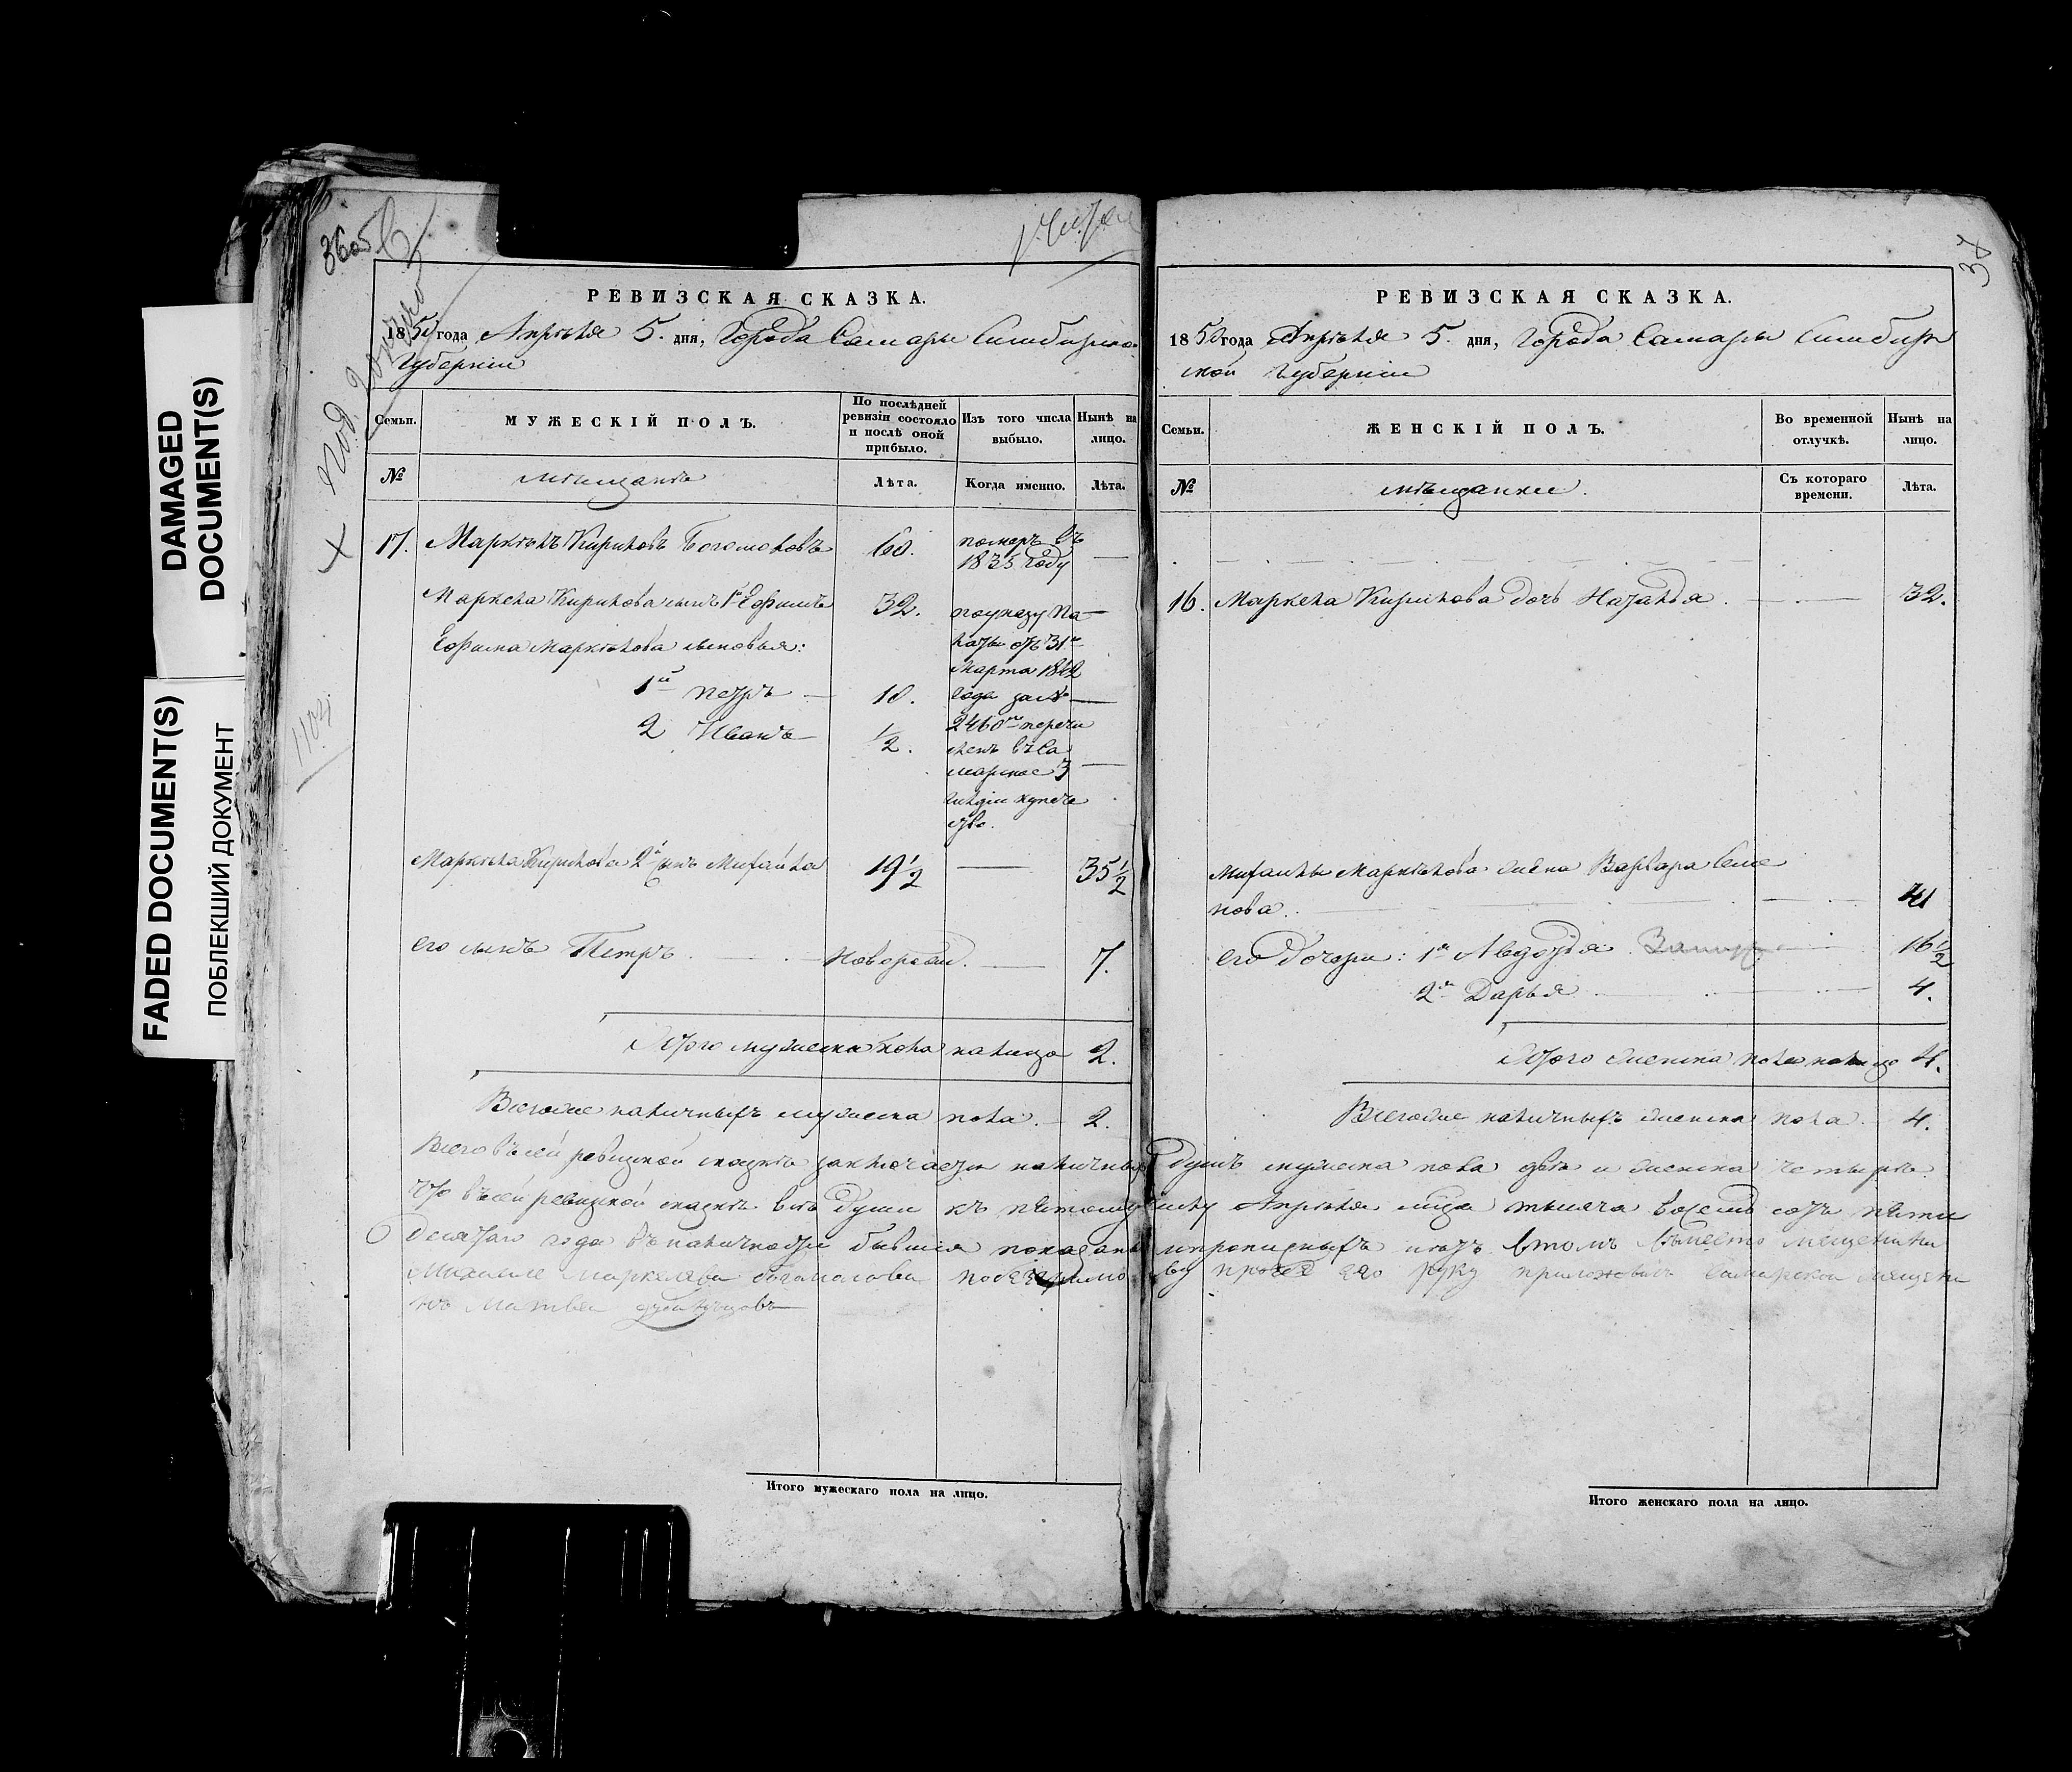 DAMAGED
DOCUMENT(S)
FADED DOCUMENT(S)
ПОБЛЕКШИЙ ДОКУМЕНТ
РЕВИЗСКАЯ СКАЗКА.
1850 года Апрѣля 5. дня, Города Самары Симбирской
Губерніи
Семьи.
МУЖЕСКІЙ ПОЛЪ.
По послѣдней ревизіи состояло и послѣ оной прибыло.
Изъ того числа выбыло.
Нынѣ на лицо.
№
мѣщанѣ
Лѣта.
Когда именно.
Лѣта.
17. Маркѣлъ Кириловъ Богомоловъ 60. померъ въ
1835 году —
Маркела Кирилова сынъ 1й Ефимъ 32. по указу Па
Ефима Маркѣлова сыновья: латы отъ 31го
Марта 1842
1й Петръ — 10. года за №
2 Иванъ ½. 2460м перечи
сленъ въ Са
марское 3
гильдіи купече
ство.
Маркѣла Кирилова 2й сынъ Михайла 19½ — 35½
его сынъ Петръ. Новорожд. — 7.
Итого мужеска пола налицо 2.
Всего же наличныхъ мужеска пола. 2.
РЕВИЗСКАЯ СКАЗКА.
1850 года Апрѣля 5. дня, Города Самары Симбир
ской Губерніи
Семьи.
ЖЕНСКІЙ ПОЛЪ.
Во временной отлучкѣ.
Нынѣ на лицо.
№
мѣщанки.
Съ котораго времени.
Лѣта.
16. Маркела Кирилова дочь Наталья. — 32.
Михайлы Маркѣлова жена Варвара Семе
нова. 41
его дочери: 1я Авдотья 16½
2я Дарья 4.
Итого женска пола налицо 4.
Всего же наличныхъ женска пола. 4.
Всего въ сей ревизской сказкѣ заключается наличныхъ душъ мужеска пола двѣ и женска четыре
что въ сей ревизской сказкѣ всѣ души къ пятому числу Апрѣля мѣца тысяча восемь сотъ пяти
десятаго года въ наличности бывшія показаны и прописныхъ нѣтъ в томъ вместо мещенина
Михаила Маркелава Богамолова руку приложилъ самарской мещени
нъ Матвей